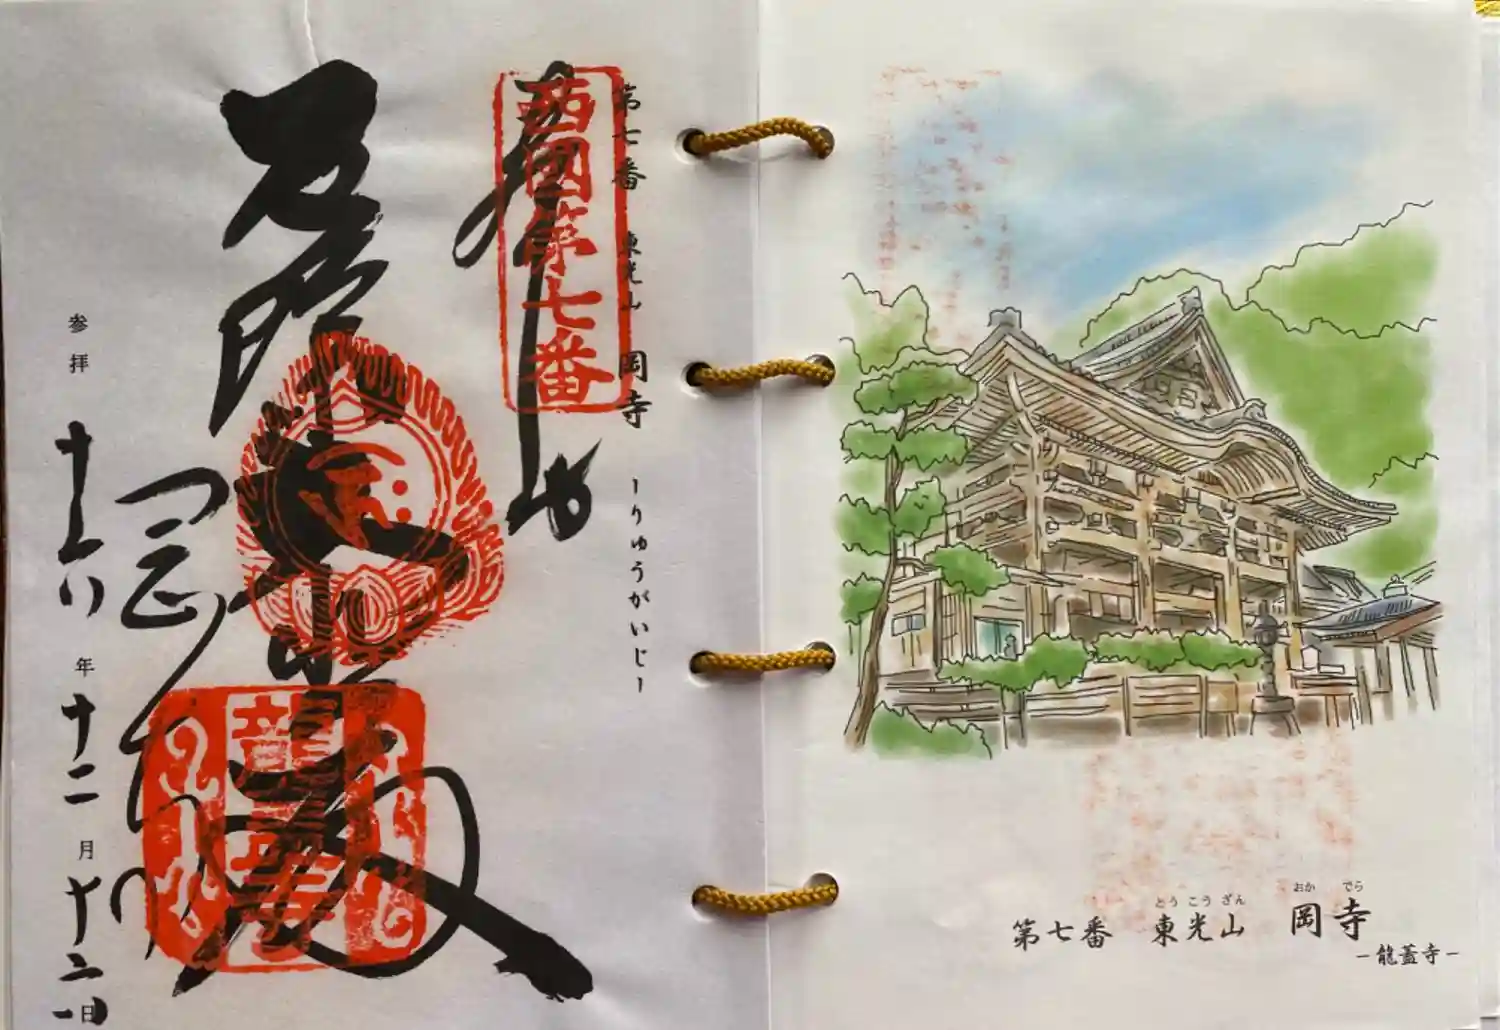 第七番 東光山 岡寺 -りゅうがいじ-
西國第七番
奉拝
龍蓋寺
岡寺
参拝 十六年 十二月 日
おかでら
とうこうざん
第七番 東光山 岡寺
-龍蓋寺-